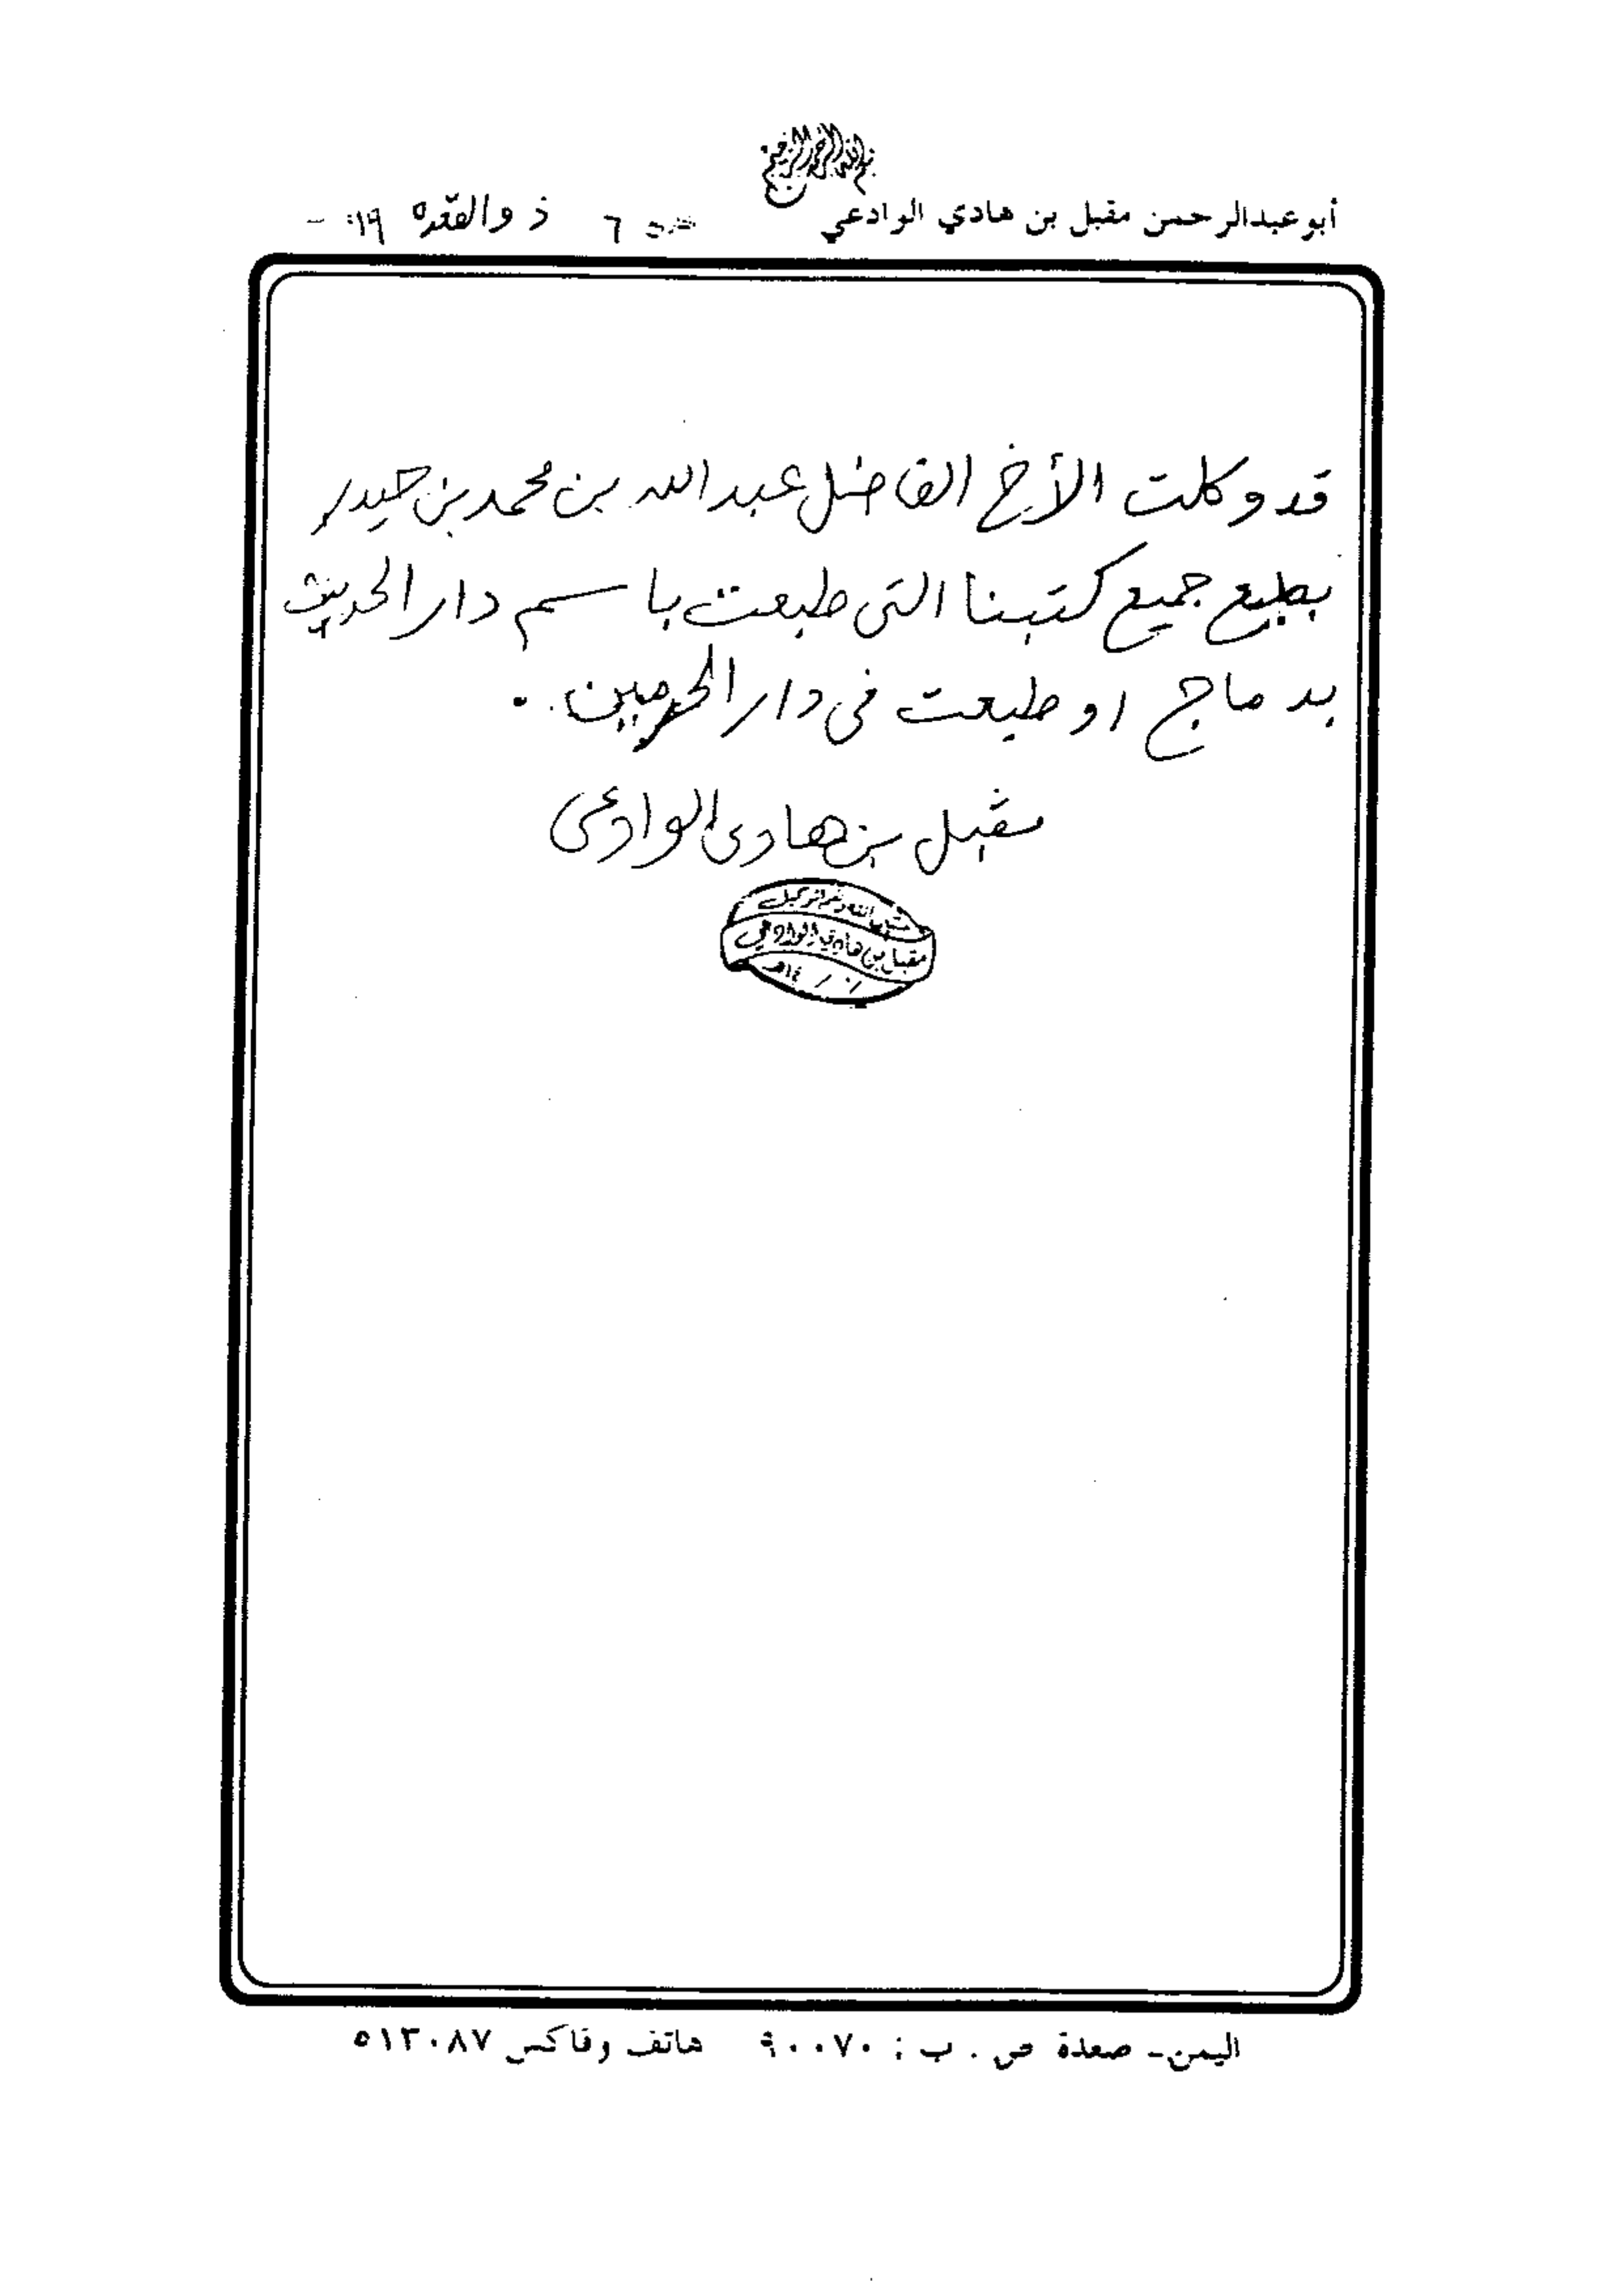 بسم الله الرحمن الرحيم
أبو عبدالرحمن مقبل بن هادي الوادعي ٦ ذو القعده ١٩
قد وكلت الأخ الفاضل عبد الله بن محمد بن حيدر
بطبع جميع كتبنا التى طبعت باسم دار الحديث
بدماج او طبعت فى دار الحرمين .
مقبل بن هادى الوادعى
حسبنا الله ونعم الوكيل
مقبل بن هادي الوادعي
اليمن - صعدة ص . ب : ٩٠٠٧٠ هاتف وفاكس ٥١٣٠٨٧